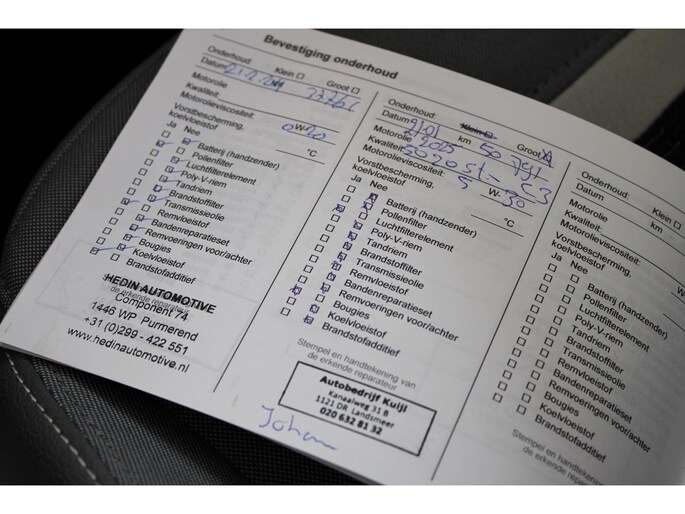 Bevestiging onderhoud
Onderhoud: Klein Groot
Datum
Motorolie
Kwaliteit
Motorolieviscositeit: 0 W- 20
Vorstbescherming,
koelvloeistof °C
Ja Nee
Batterij (handzender)
Pollenfilter
Luchtfilterelement
Poly-V-riem
Tandriem
Brandstoffilter
Transmissieolie
Remvloeistof
Bandenreparatieset
Remvoeringen voor/achter
Bougies
Koelvloeistof
Brandstofadditief
HEDIN AUTOMOTIVE
de erkende reparateur
Component 74
1446 WP Purmerend
+31 (0)299 - 422 551
www.hedinautomotive.nl
Onderhoud: Klein Groot
Datum km
Motorolie 2025
Kwaliteit
Motorolieviscositeit: 5 W- 30
Vorstbescherming,
koelvloeistof °C
Ja Nee
Batterij (handzender)
Pollenfilter
Luchtfilterelement
Poly-V-riem
Tandriem
Brandstoffilter
Transmissieolie
Remvloeistof
Bandenreparatieset
Remvoeringen voor/achter
Bougies
Koelvloeistof
Brandstofadditief
Stempel en handtekening van
de erkende reparateur
Autobedrijf Kuijl
Kanaalweg 31 B
1121 DR Landsmeer
020 632 81 32
Johan
Onderhoud: Klein
Datum km
Motorolie
Kwaliteit
Motorolieviscositeit:
Vorstbescherming,
koelvloeistof
Ja Nee
Batterij (handzender)
Pollenfilter
Luchtfilterelement
Poly-V-riem
Tandriem
Brandstoffilter
Transmissieolie
Remvloeistof
Bandenreparatieset
Remvoeringen voor/achter
Bougies
Koelvloeistof
Brandstofadditief
Stempel en handtekening
de erkende reparateur